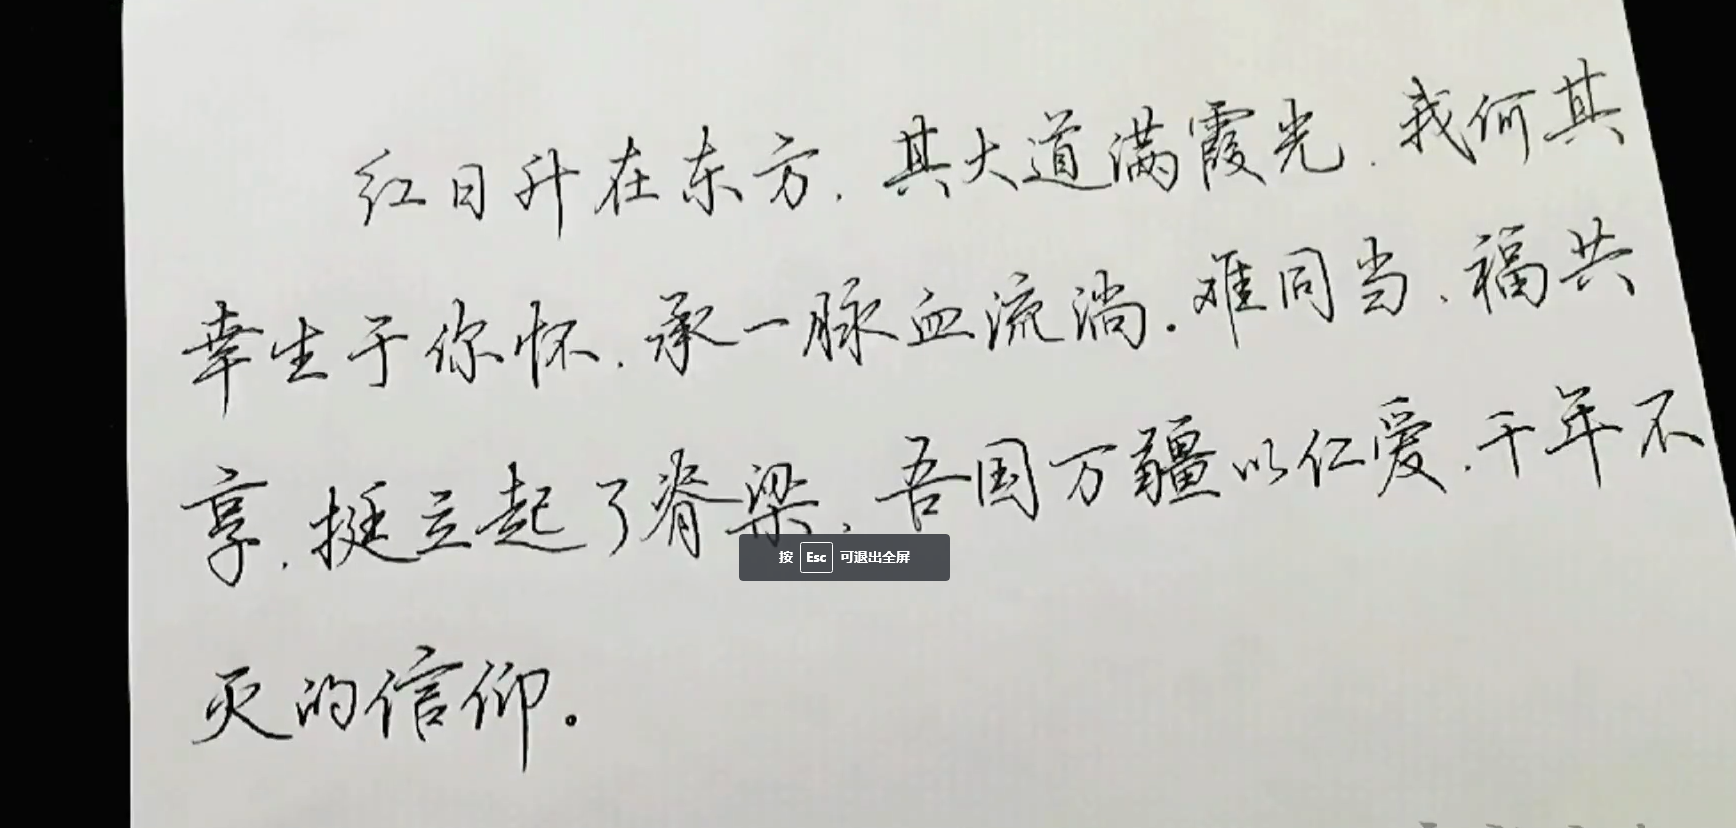 红日升在东方,其大道满霞光.我何其
幸生于你怀,承一脉血流淌.难同当,福共
享,挺立起了脊梁,吾国万疆以仁爱,千年不
按 Esc 可退出全屏
灭的信仰。